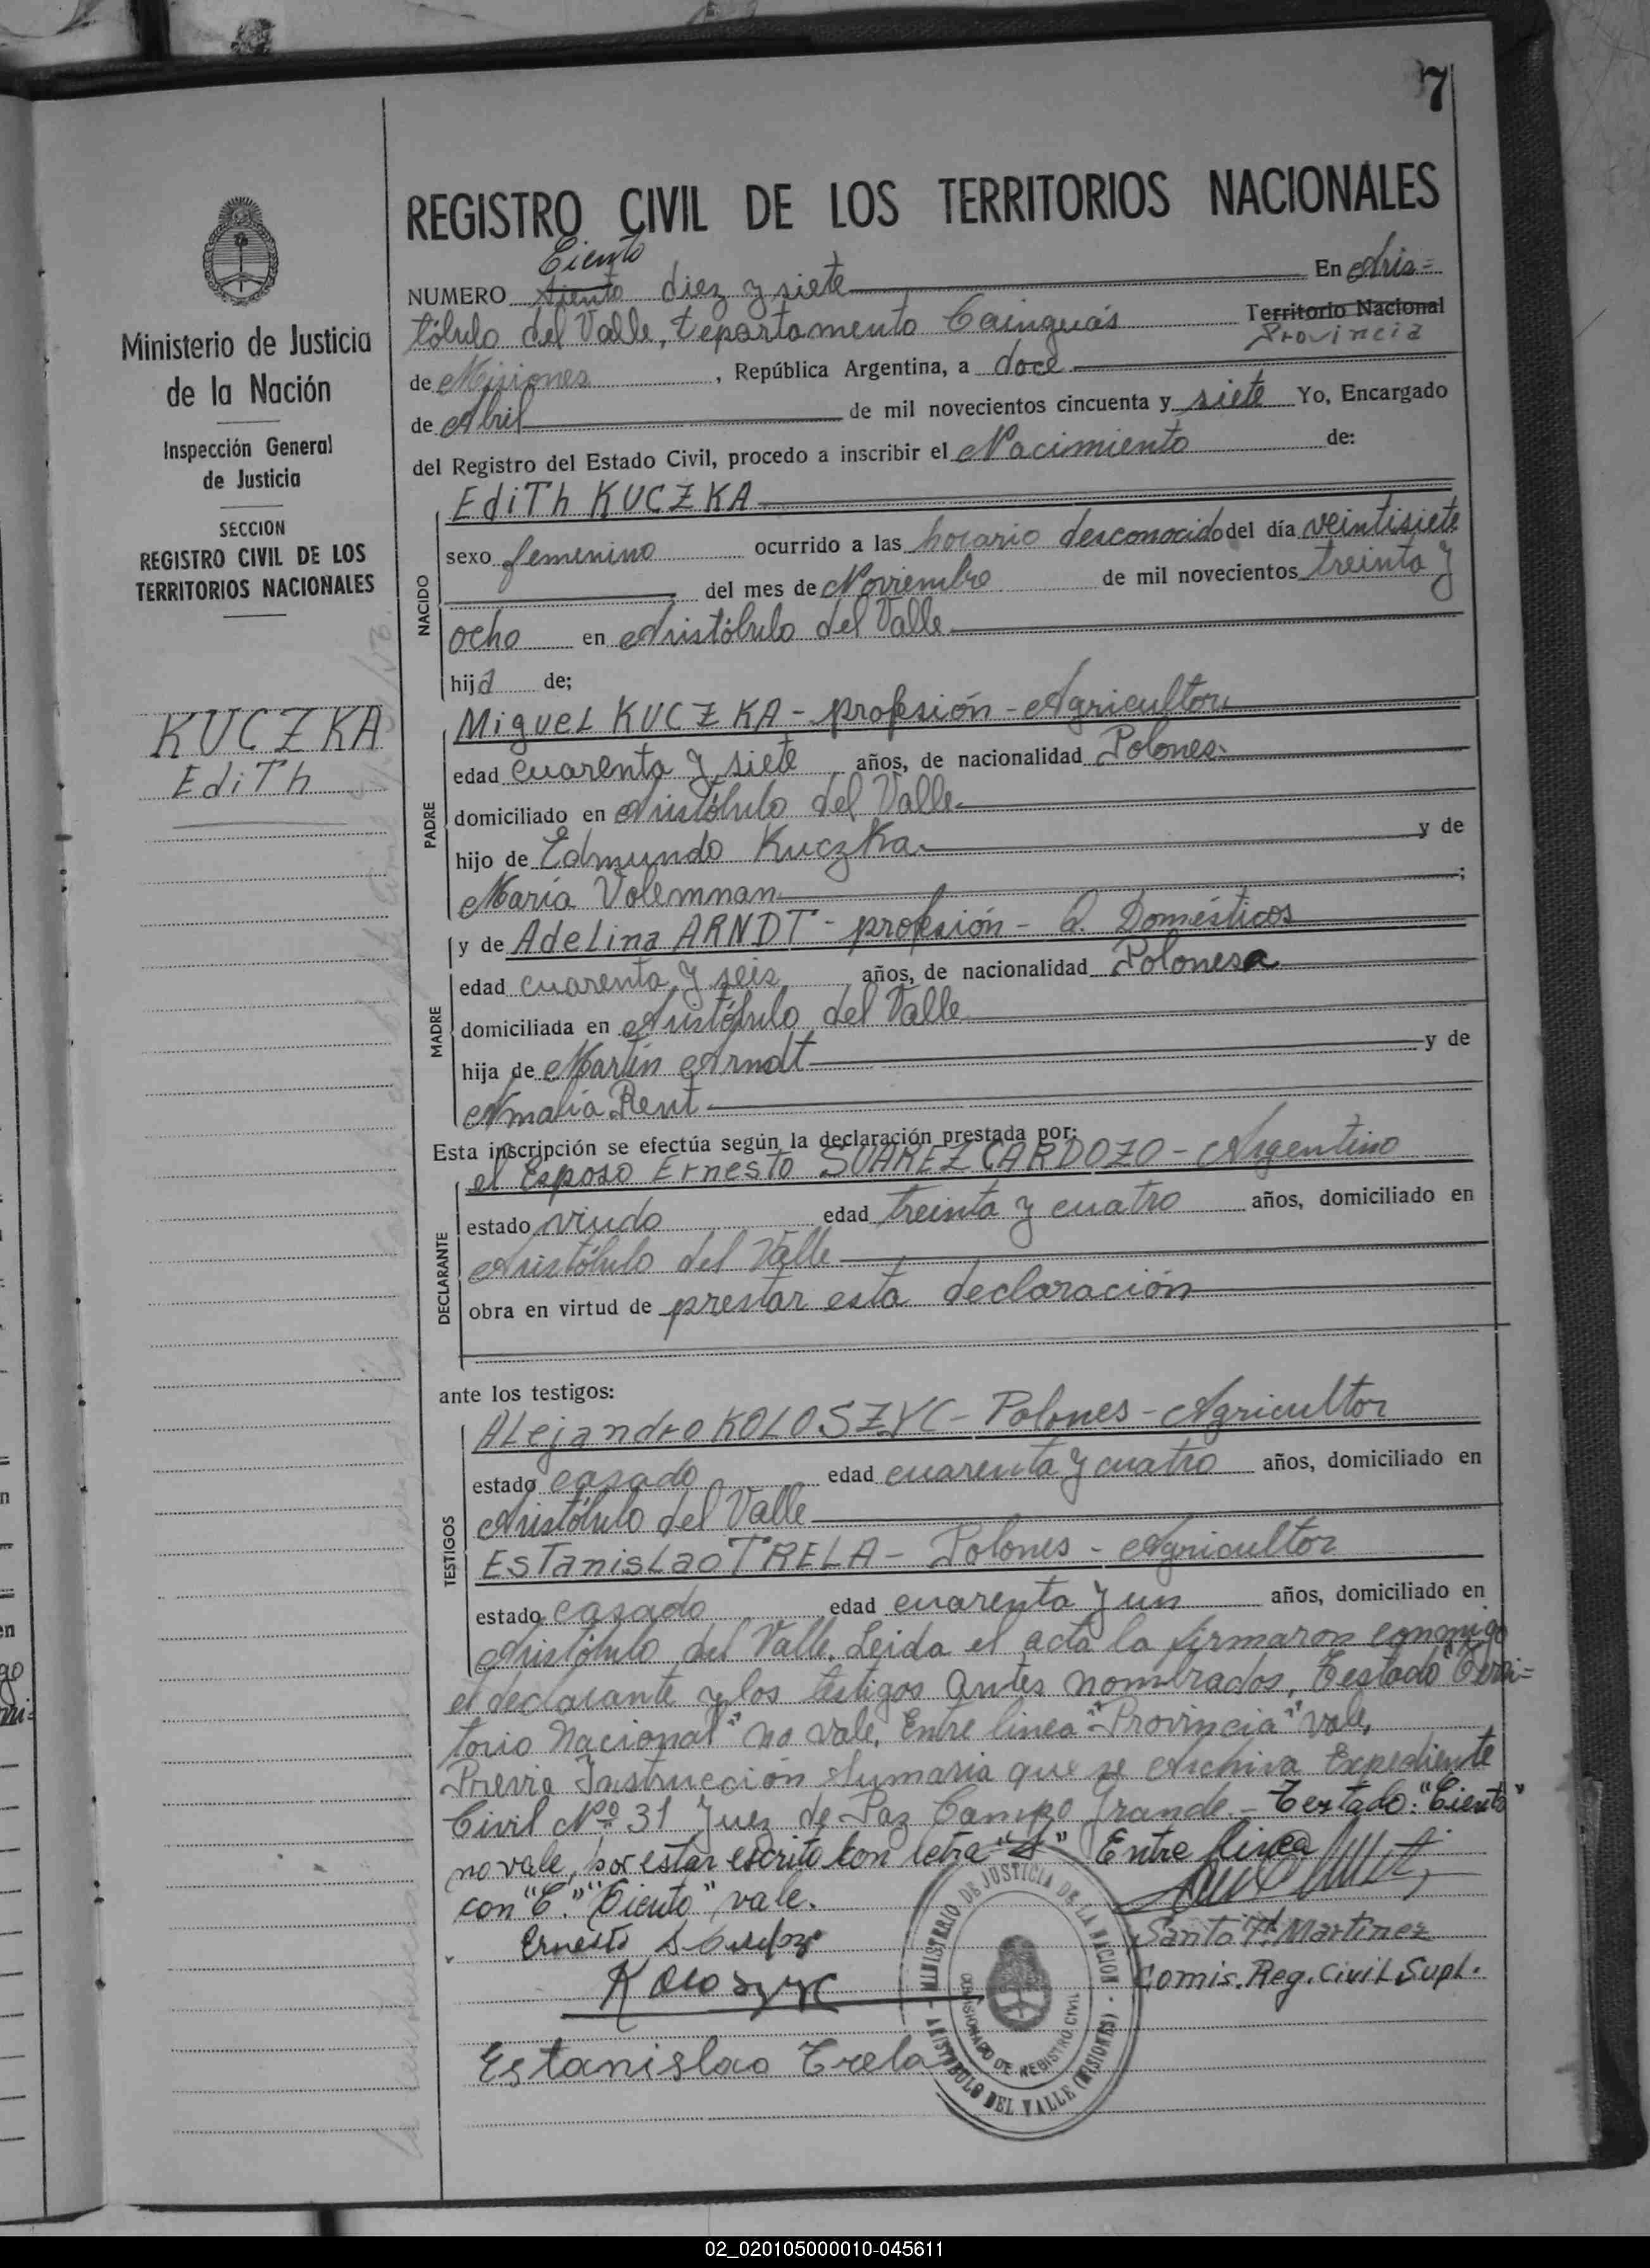 7
REGISTRO CIVIL DE LOS TERRITORIOS NACIONALES
Ministerio de Justicia
de la Nación
Inspección General
de Justicia
SECCION
REGISTRO CIVIL DE LOS
TERRITORIOS NACIONALES
KUCZKA
EdiTh
Ciento
NUMERO Siento diez y siete En Aris=
tóbulo del Valle, Departamento Cainguás Territorio Nacional
Provincia
de Misiones, República Argentina, a doce
de Abril de mil novecientos cincuenta y siete Yo, Encargado
del Registro del Estado Civil, procedo a inscribir el Nacimiento de:
NACIDO
EdiTh KUCZKA
sexo femenino ocurrido a las horario desconocido del día veintisiete
del mes de Noviembre de mil novecientos treinta y
ocho en Aristóbulo del Valle
hija de;
PADRE
Miguel KUCZKA - profesión - Agricultor
edad cuarenta y siete años, de nacionalidad Polones.
domiciliado en Aristóbulo del Valle
hijo de Edmundo Kuczka y de
María Volemnan ;
MADRE
y de Adelina ARNDT - profesión - Q. Domésticos
edad cuarenta y seis años, de nacionalidad Polonesa
domiciliada en Aristóbulo del Valle
hija de Martin Arndt y de
Amalia Rent
Esta inscripción se efectúa según la declaración prestada por:
DECLARANTE
el Esposo Ernesto SUAREZ CARDOZO - Argentino
estado viudo edad treinta y cuatro años, domiciliado en
Aristóbulo del Valle
obra en virtud de prestar esta declaración
ante los testigos:
TESTIGOS
Alejandro KOLOSZYC - Polones - Agricultor
estado casado edad cuarenta y cuatro años, domiciliado en
Aristóbulo del Valle
Estanislao TRELA - Polones - Agricultor
estado casado edad cuarenta y un años, domiciliado en
Aristóbulo del Valle. Leida el acta la firmaron conmigo
el declarante y los testigos antes nombrados. Testado "Terri=
torio Nacional" no vale. Entre linea "Provincia" vale.
Previa Instrucción Sumaria que se Archiva Expediente
Civil Nº 31 Juez de Paz Campo Grande.- Testado: "Ciento"
no vale, por estar escrito con letra "S" Entre linea
con "C." "Ciento" vale.
Ernesto S
Koloszyc
Estanislao Trela
Santo Martinez
Comis. Reg. Civil Supl.
MINISTERIO DE JUSTICIA DE LA NACION
COMISIONADO DE REGISTRO CIVIL
ARISTOBULO DEL VALLE (MISIONES)
02_020105000010-045611